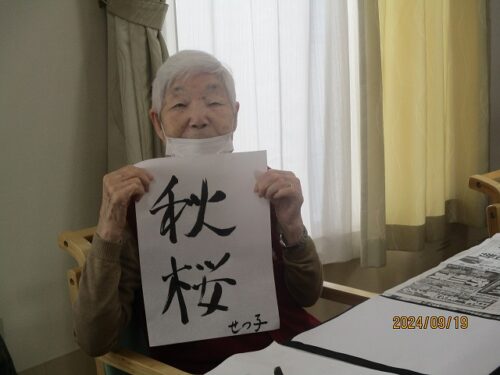 秋
桜
せつ子
2024/09/19